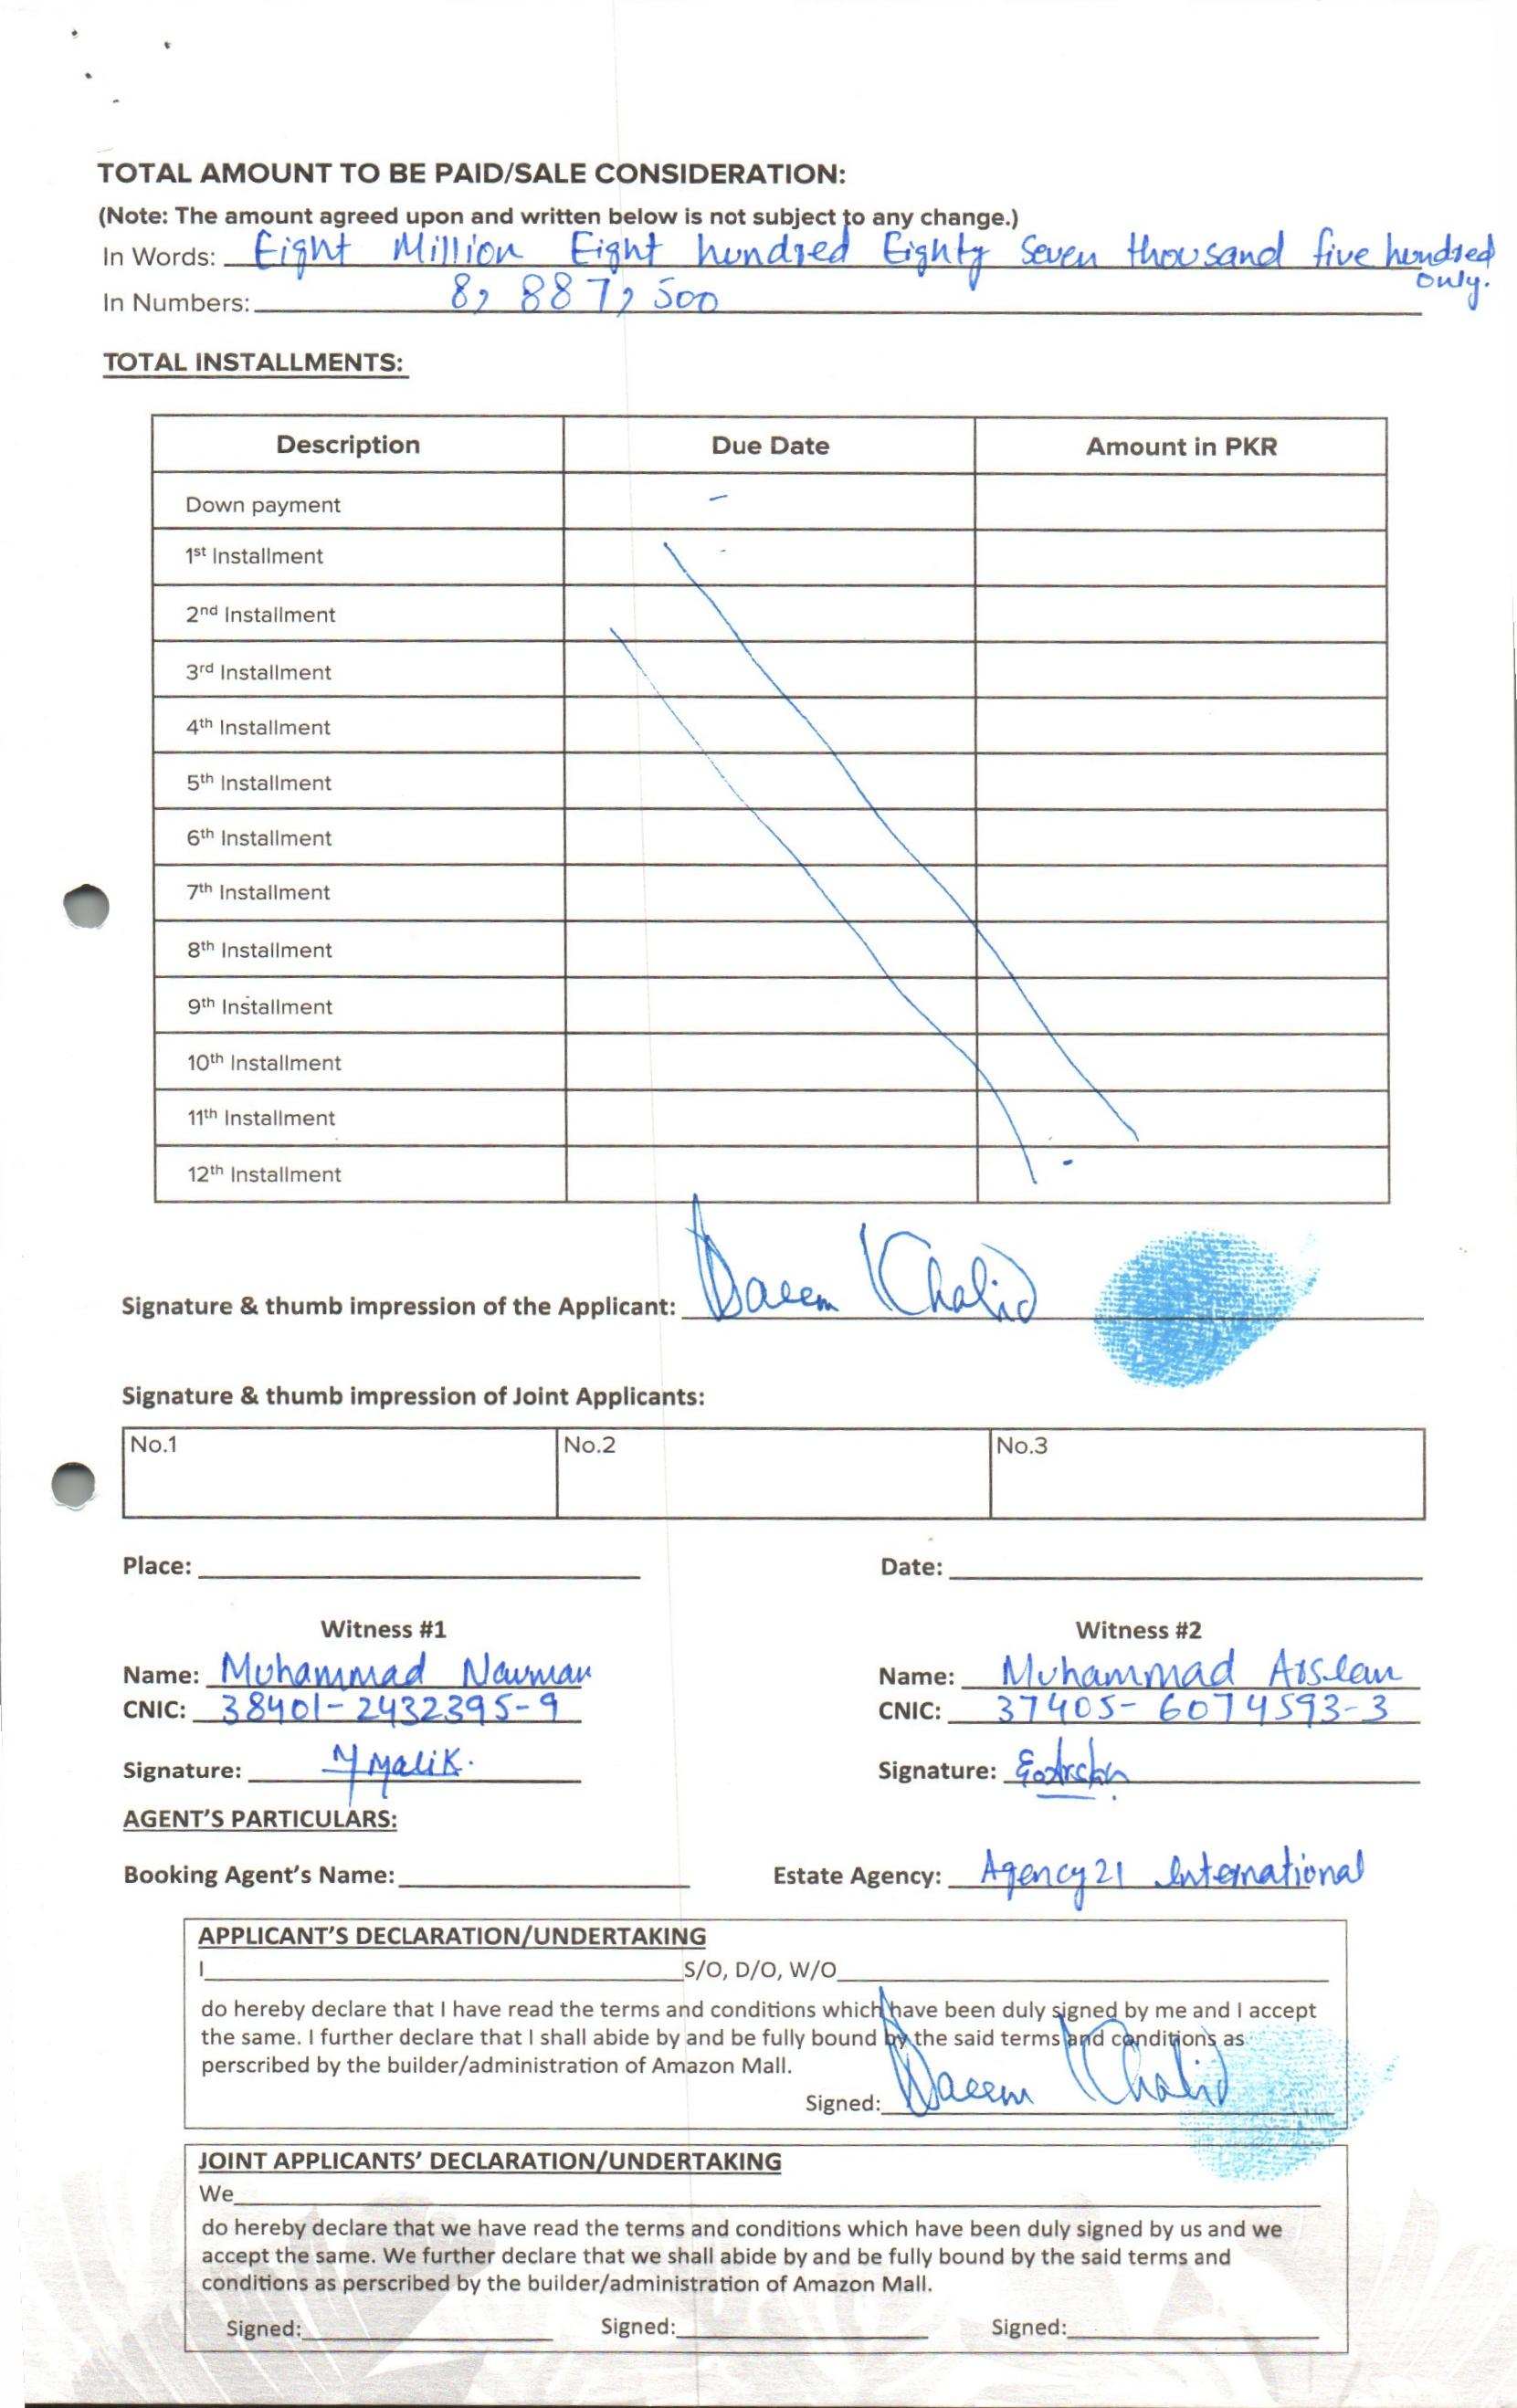 TOTAL AMOUNT TO BE PAID/SALE CONSIDERATION:
(Note: The amount agreed upon and written below is not subject to any change.)
In Words: Eight Million Eight hundred Eighty Seven thousand five hundred only.
In Numbers: 8, 887, 500
TOTAL INSTALLMENTS:
Description Due Date Amount in PKR
Down payment -
1st Installment
2nd Installment
3rd Installment
4th Installment
5th Installment
6th Installment
7th Installment
8th Installment
9th Installment
10th Installment
11th Installment
12th Installment
Signature & thumb impression of the Applicant: Naeem Khalid
Signature & thumb impression of Joint Applicants:
No.1 No.2 No.3
Place: Date:
Witness #1 Witness #2
Name: Muhammad Nauman Name: Muhammad Arslan
CNIC: 38401-2432395-9 CNIC: 37405-6074593-3
Signature: Malik. Signature:
AGENT'S PARTICULARS:
Booking Agent's Name: Estate Agency: Agency21 International
APPLICANT'S DECLARATION/UNDERTAKING
I S/O, D/O, W/O
do hereby declare that I have read the terms and conditions which have been duly signed by me and I accept
the same. I further declare that I shall abide by and be fully bound by the said terms and conditions as
perscribed by the builder/administration of Amazon Mall.
Signed: Naeem Khalid
JOINT APPLICANTS' DECLARATION/UNDERTAKING
We
do hereby declare that we have read the terms and conditions which have been duly signed by us and we
accept the same. We further declare that we shall abide by and be fully bound by the said terms and
conditions as perscribed by the builder/administration of Amazon Mall.
Signed: Signed: Signed: